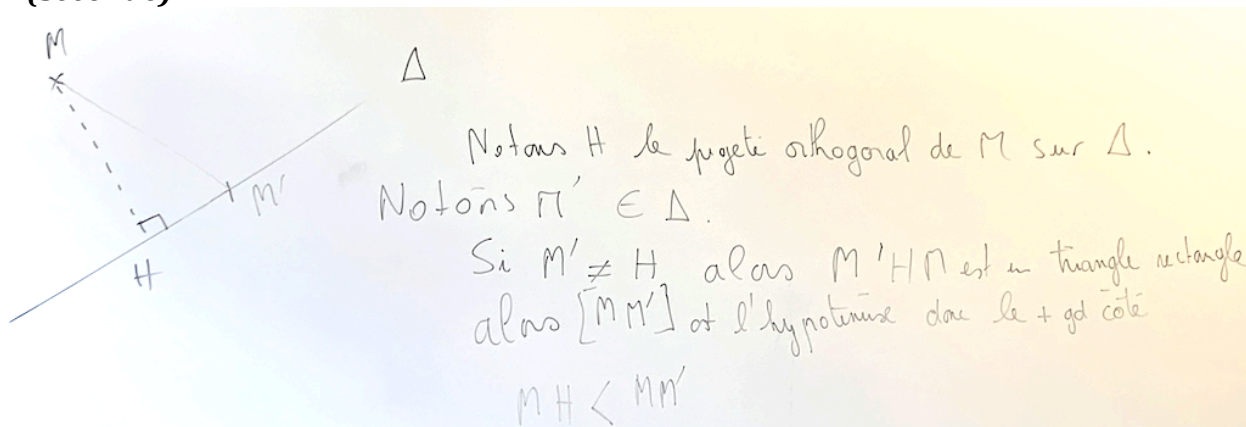 M
Δ
Notons H le projeté orthogonal de M sur Δ.
Notons M' ∈ Δ.
M'
Si M' ≠ H alors M'HM est un triangle rectangle
H
alors [MM'] est l'hypoténuse donc le + gd côté
MH < MM'